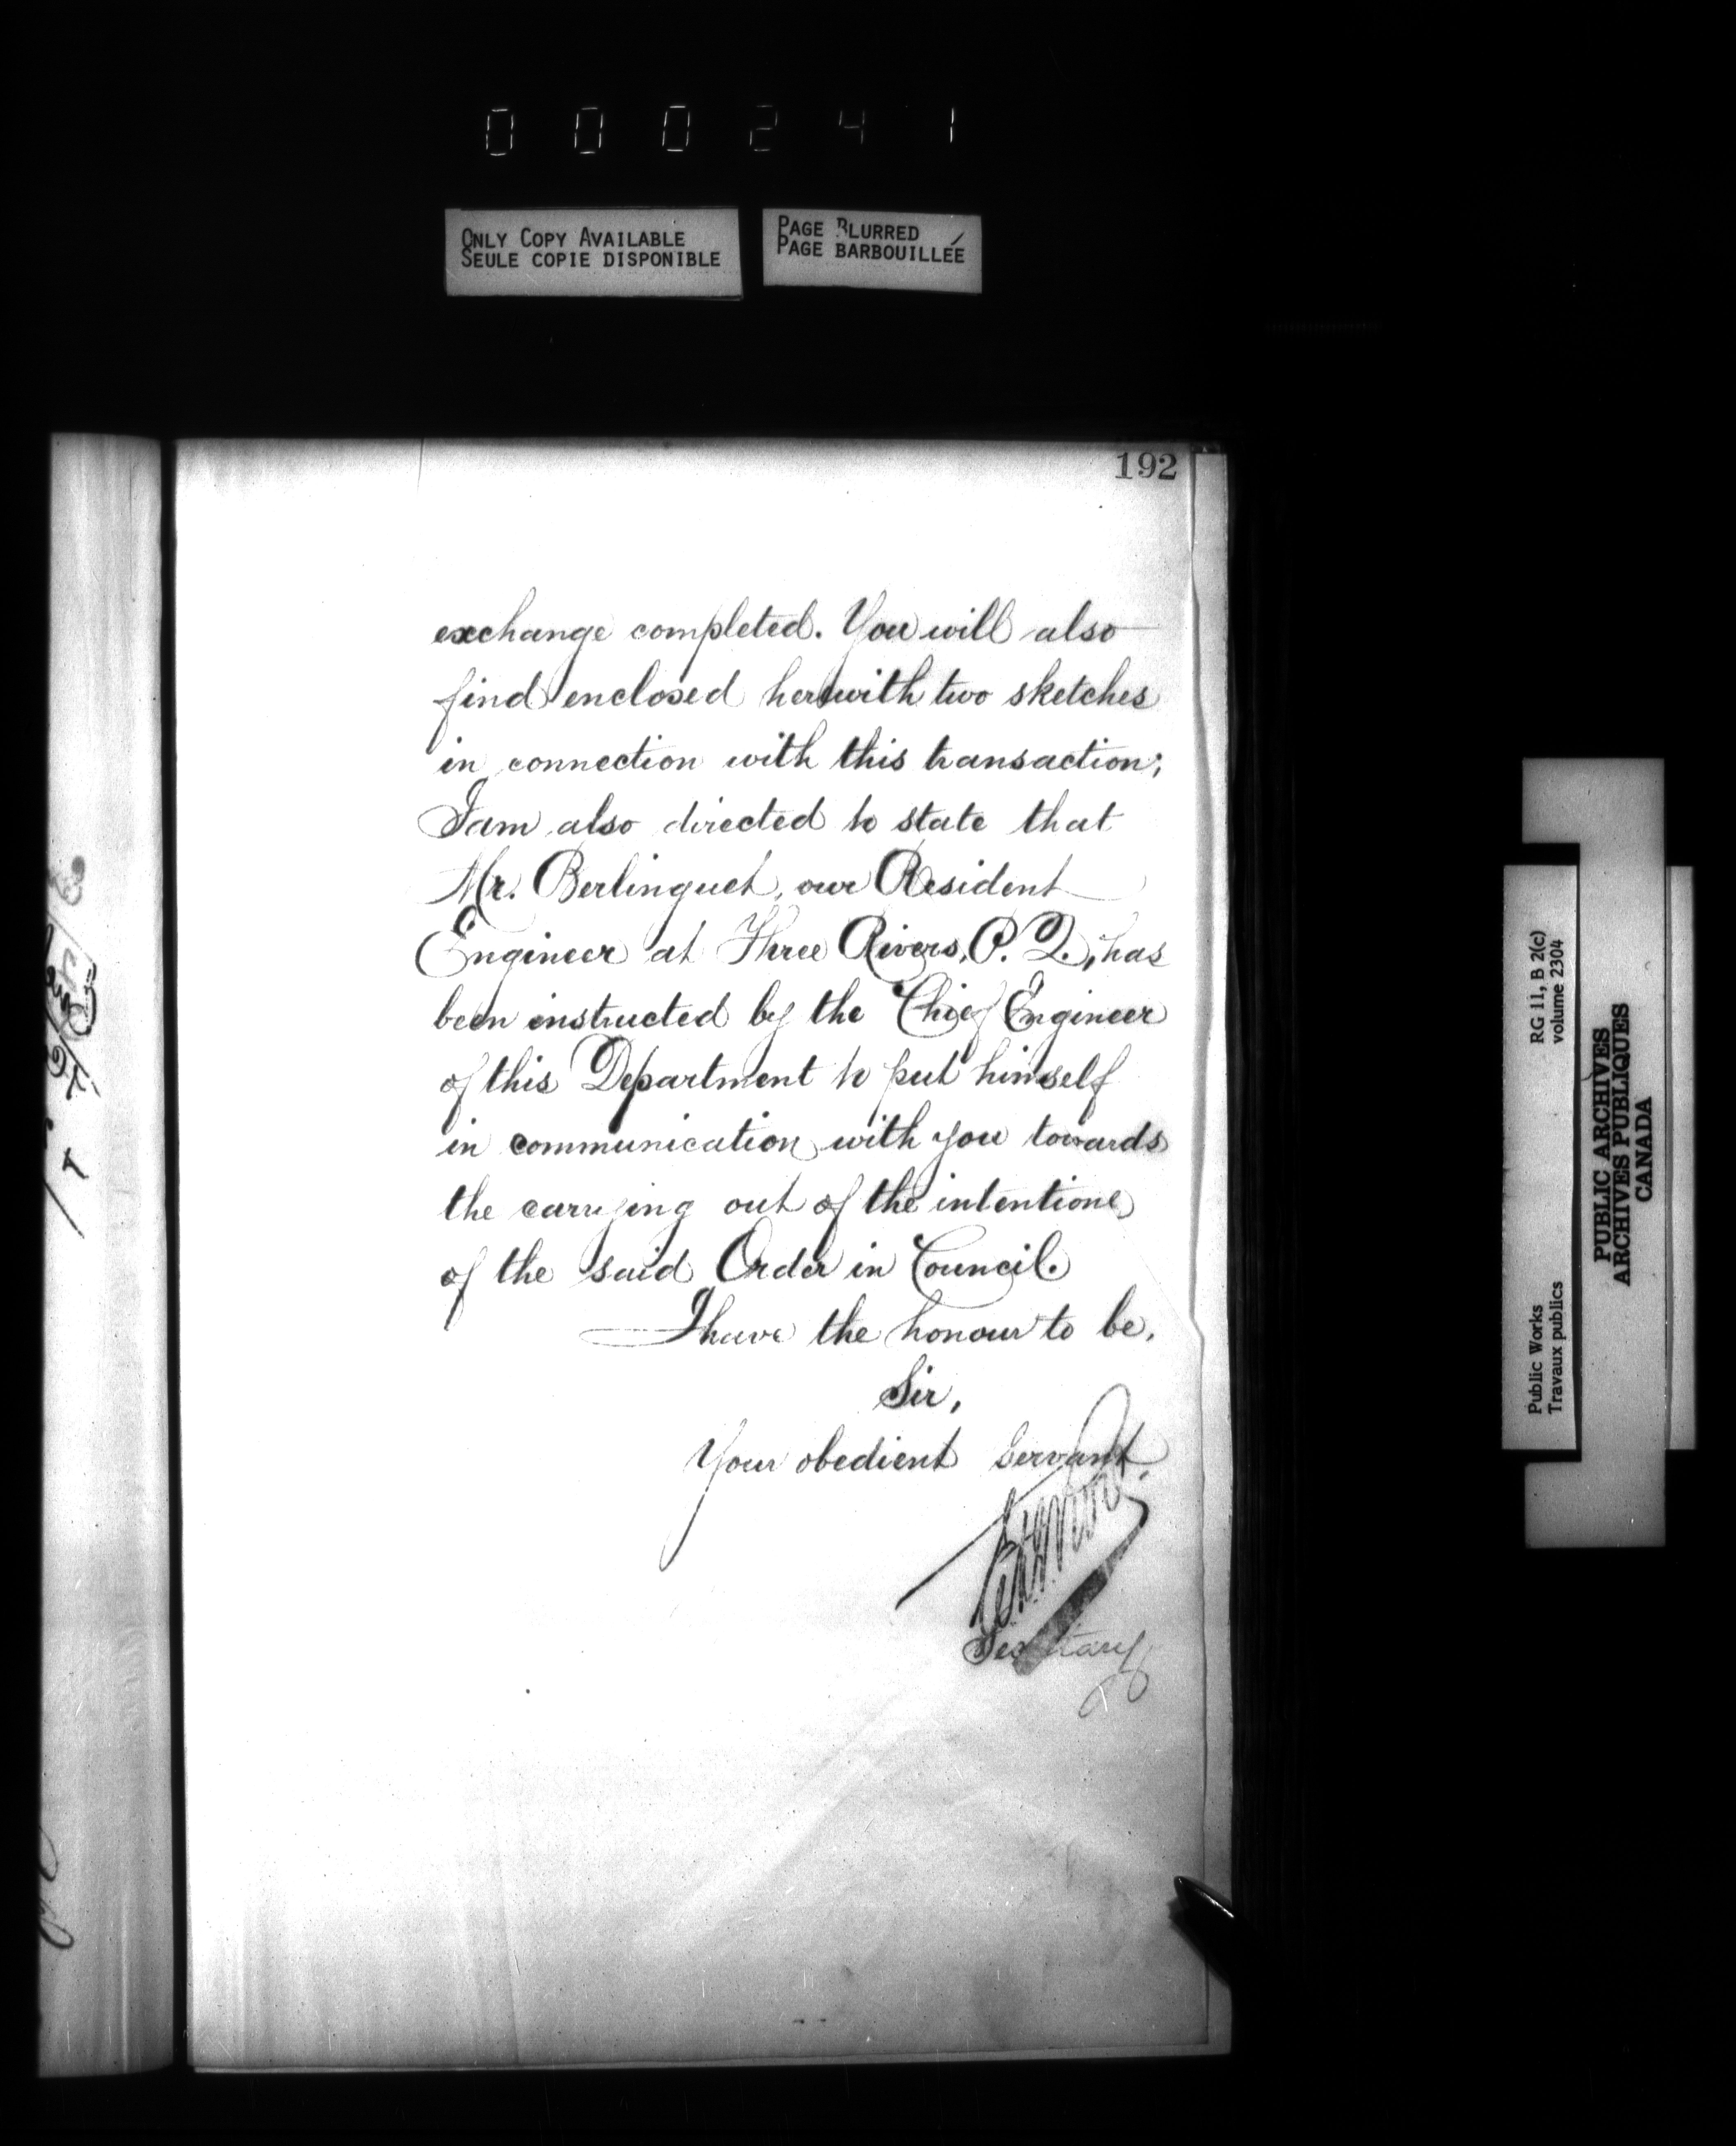 000241
ONLY COPY AVAILABLE
SEULE COPIE DISPONIBLE
PAGE BLURRED
PAGE BARBOUILLÉE
192
exchange completed. You will also
find enclosed herewith two sketches
in connection with this transaction;
I am also directed to state that
Mr. Berlinguet, our Resident
Engineer at Three Rivers, P. Q., has
been instructed by the Chief Engineer
of this Department to put himself
in communication with you towards
the carrying out of the intentions
of the said Order in Council.
I have the honour to be,
Sir,
Your obedient Servant.
Secretary
RG 11, B 2(c)
volume 2304
Public Works
Travaux publics
PUBLIC ARCHIVES
ARCHIVES PUBLIQUES
CANADA